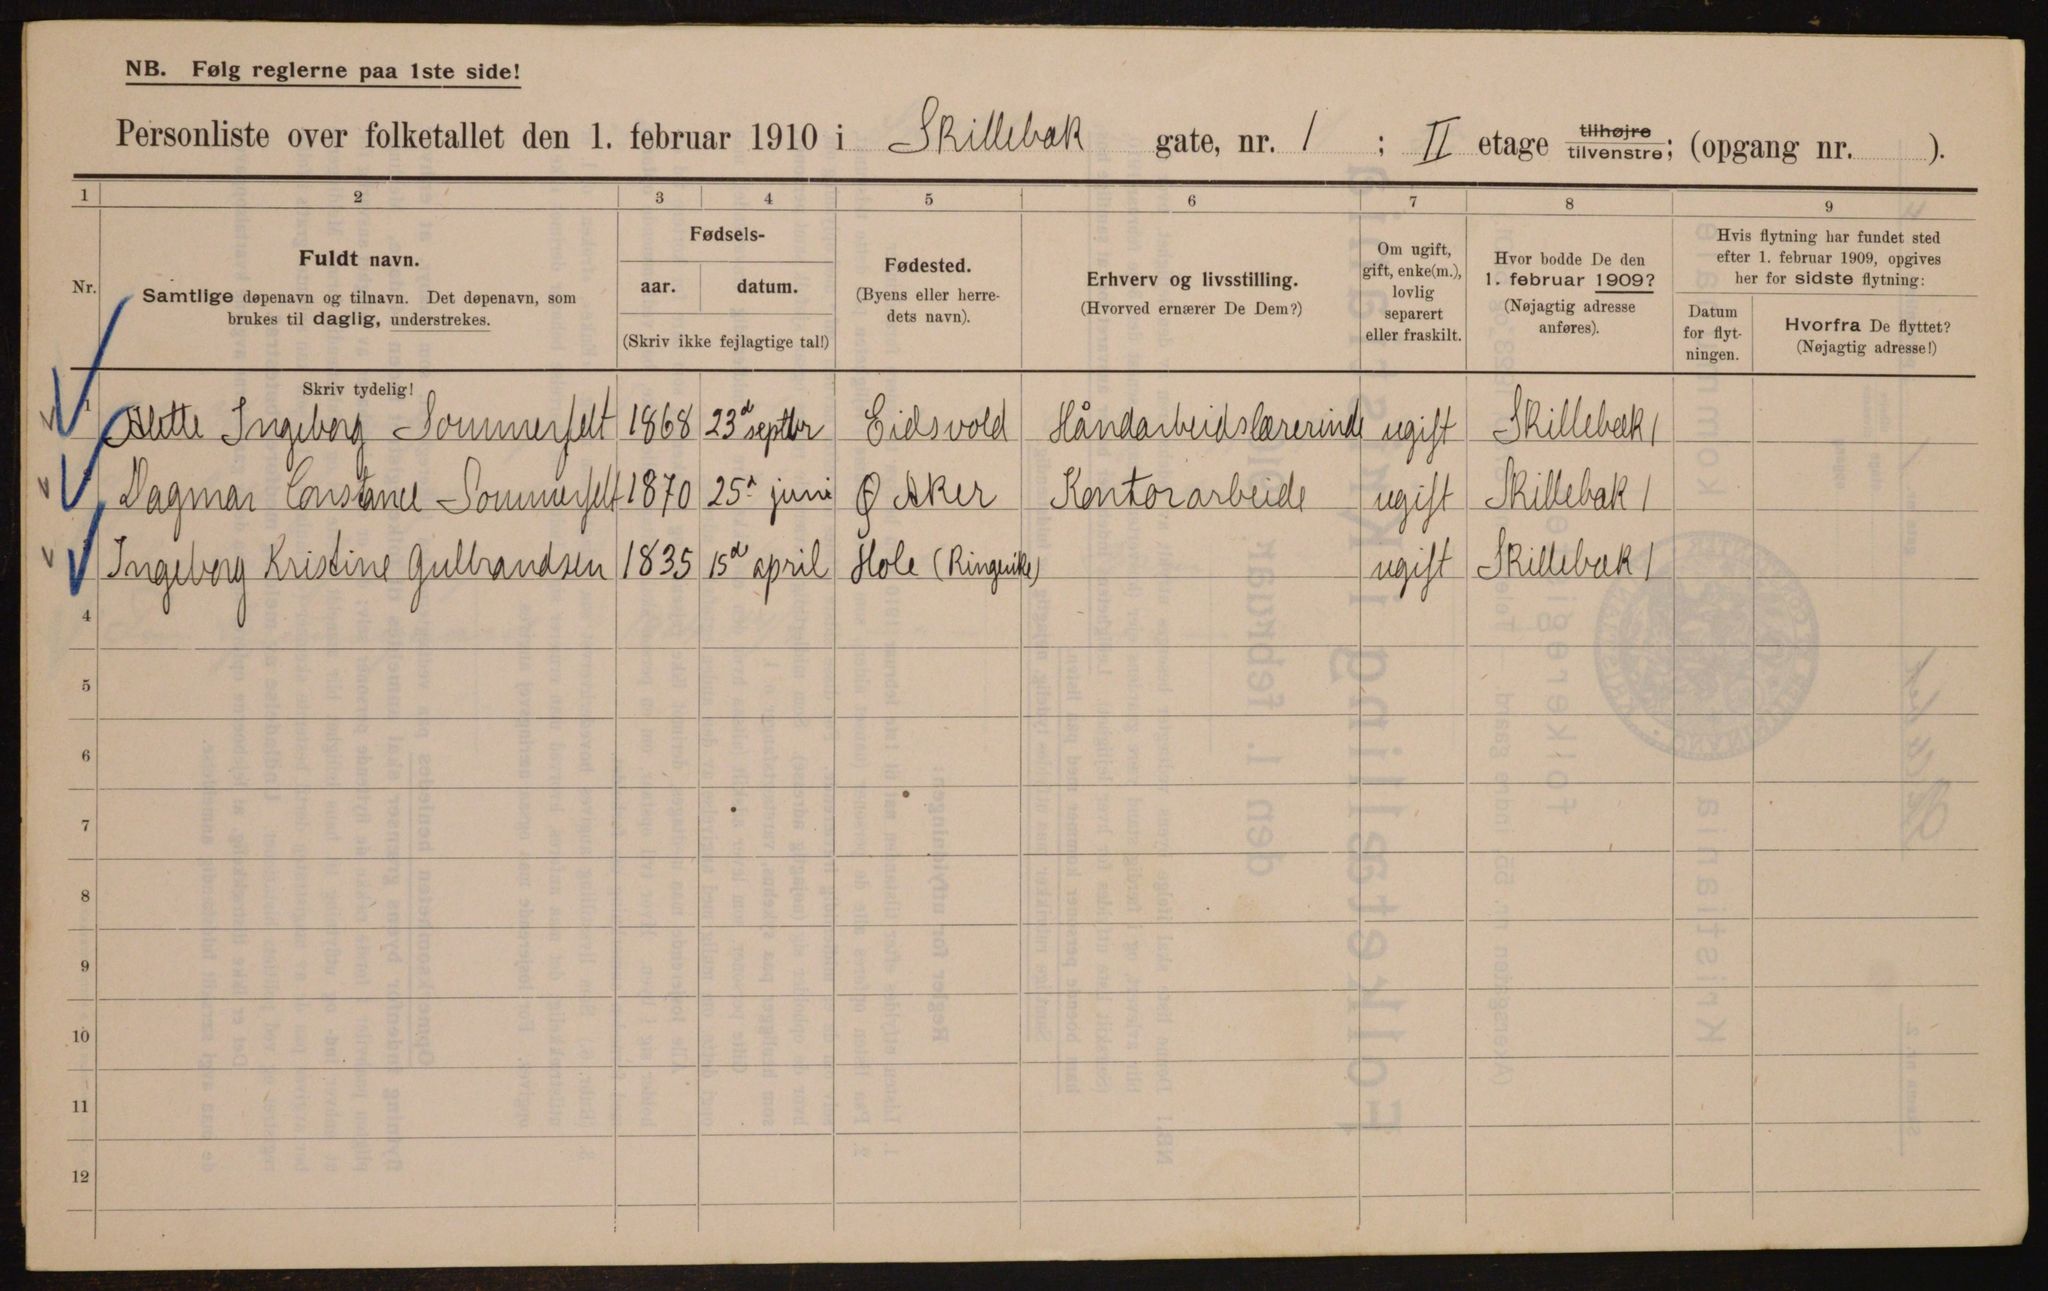 NB. Følg reglerne paa 1ste side!
Personliste over folketallet den 1. februar 1910 i Skillebæk gate, nr. 1 ; II etage tilhøjre tilvenstre; (opgang nr. ).
1 2 3 4 5 6 7 8 9
Nr.
Fuldt navn.
Samtlige døpenavn og tilnavn. Det døpenavn, som
brukes til daglig, understrekes.
Fødsels-
aar. datum.
(Skriv ikke fejlagtige tal!)
Fødested.
(Byens eller herre-
dets navn).
Erhverv og livsstilling.
(Hvorved ernærer De Dem?)
Om ugift,
gift, enke(m.),
lovlig
separert
eller fraskilt.
Hvor bodde De den
1. februar 1909?
(Nøjagtig adresse
anføres).
Hvis flytning har fundet sted
efter 1. februar 1909, opgives
her for sidste flytning:
Datum
for flyt-
ningen.
Hvorfra De flyttet?
(Nøjagtig adresse!)
Skriv tydelig!
1 Alette Ingeborg Sommerfelt 1868 23d septbr Eidsvold Håndarbeidslærerinde ugift Skillebæk 1
Dagmar Constance Sommerfelt 1870 25d juni Ø Aker Kontorarbeide ugift Skillebæk 1
Ingeborg Kristine Gulbrandsen 1835 15d april Hole (Ringerike) ugift Skillebæk 1
4
5
6
7
8
9
10
11
12